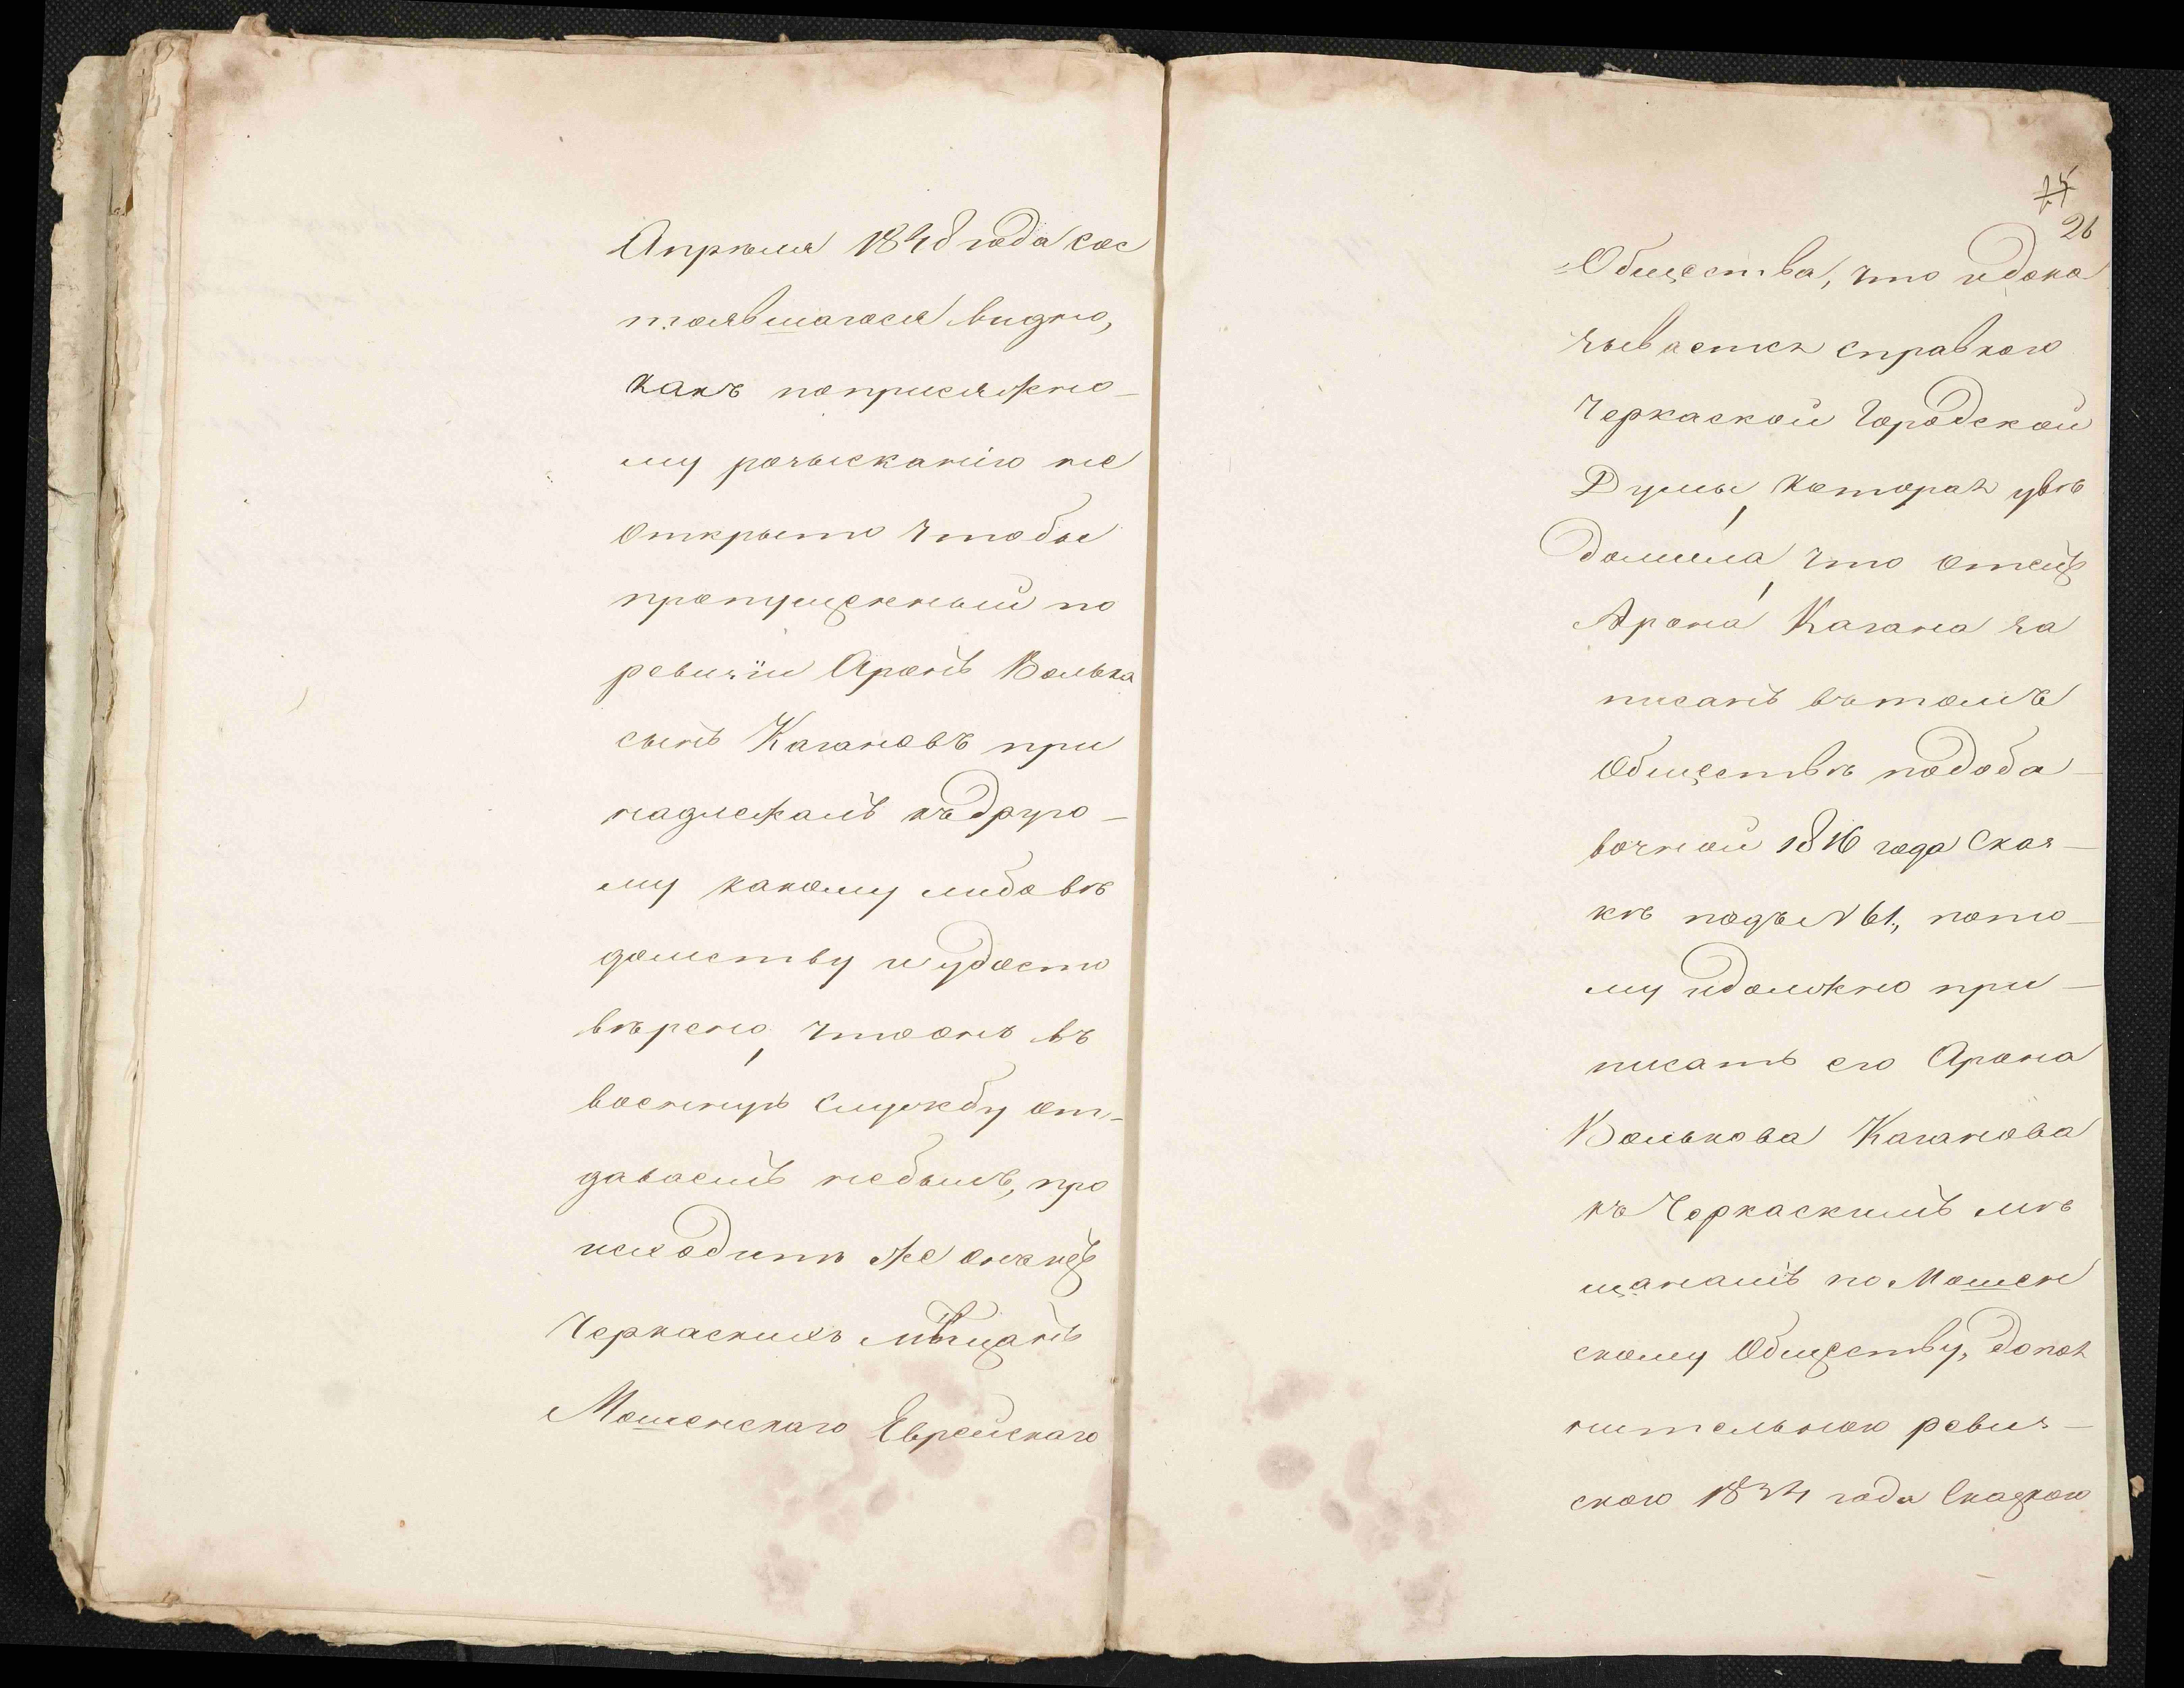 Апрѣля 1848 года сос
тоявшагося видно,
какъ поприсяжно-
му розысканію не
открыто чтобы
пропущенный по
ревизіи Аронъ Волька
сынъ Кагановъ при
надлежалъ къдруго-
му какому либо вѣ
домству и удосто
вѣрено, чтоонъ въ
военную службу от-
даваемъ небылъ, про
исходитъ же онъ изъ
Черкаскихъ мѣщанъ
Мошенскаго Еврейскаго
25
26
Общества, что и дока
зывается справкою
Черкаской Городской
Думы, которая увѣ
домила, что отецъ
Арона Кагана за
писанъ вътомъ
Обществѣ подоба-
вочной 1816 года Сказ-
кѣ подъ № 61, пото-
му и должно при-
писать его Арона
Волькова Каганова
къ Черкаскимъ мѣ
щанамъ по Мошен
скому Обществу, допол
нительною ревиз-
скою 1834 года Сказкою